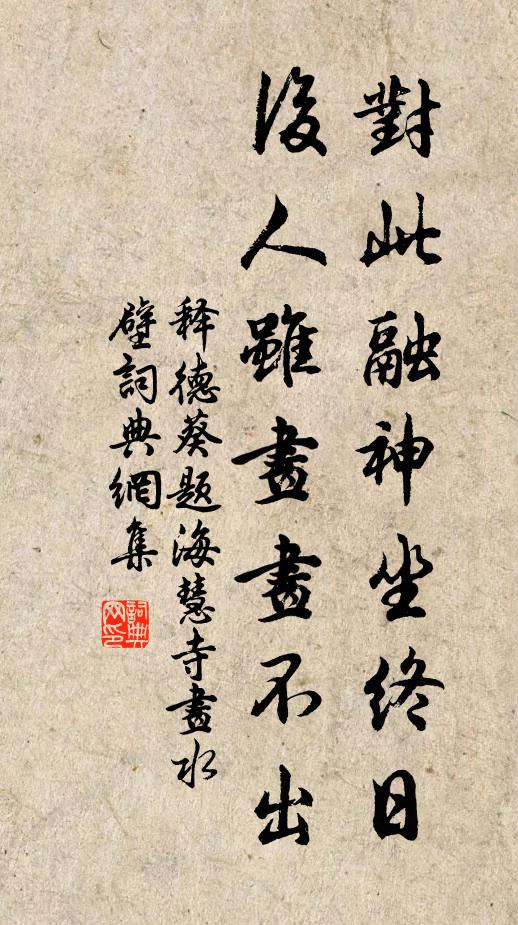 對此融神坐终日
後人雖畫畫不出
释德葵题海慧寺畫水
壁詞典網集
詞典
网印